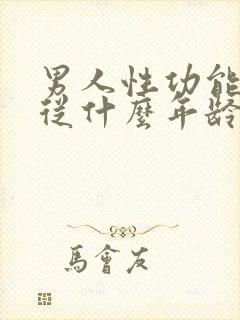 男人性功能
從什麼年齡
馬會友